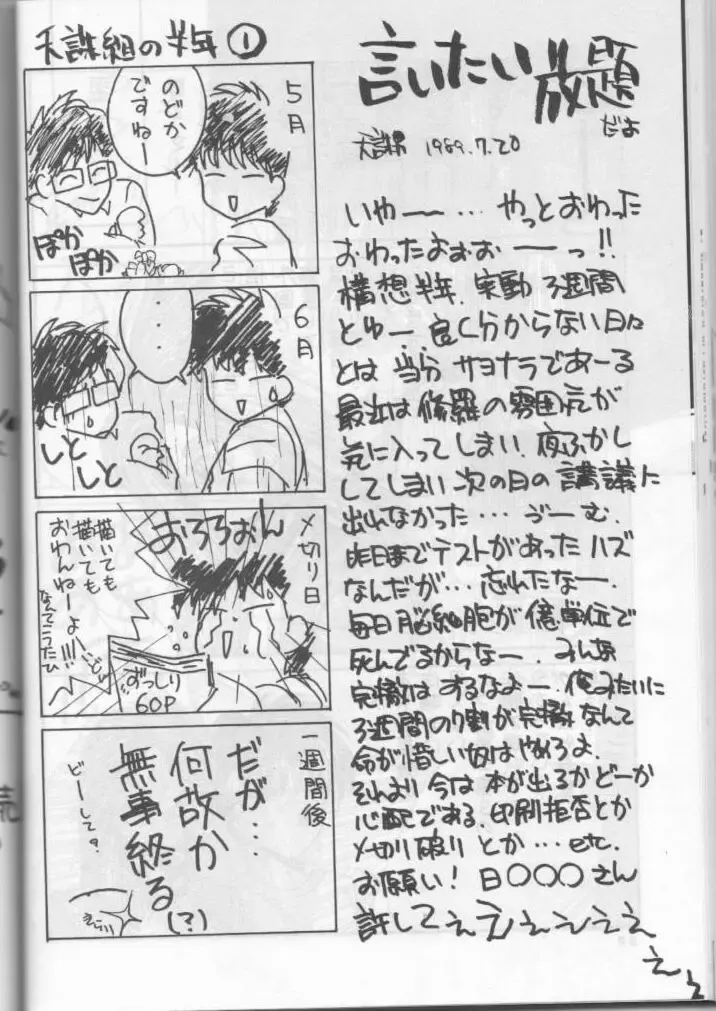 言いたい放題
だよ
天誅組 1989.7.20
いやー…やっとおわった
おわったよぉぉーーっ!!
構想半年、実動3週間
とゆー、良く分からない日々
とは当分サヨナラであーる
最近は修羅の雰囲気が
気に入ってしまい、夜ふかし
してしまい次の日の講議に
出れなかった…うーむ、
昨日までテストがあったハズ
なんだが…忘れたなー、
毎日脳細胞が億単位で
死んでるからなー、みんな
完徹はするなよー、俺みたいに
3週間の9割が完徹なんて
命が惜しい奴はやめろよ、
それより今は本が出るかどーか
心配である、印刷拒否とか
〆切り破りとか…etc.
お願い!日○○○さん
許してぇぇぇぇぇぇ
ぇぇ
天誅組の半年①
5月
のどか
ですねー
ぽか
ぽか
6月
…
しと
しと
〆切り日
おろろぉん
描いても
描いても
おわんねーよー!!!
なんてこったい
ずっしり
60P
一週間後
だが…
何故か
無事終る
(?)
どーして?